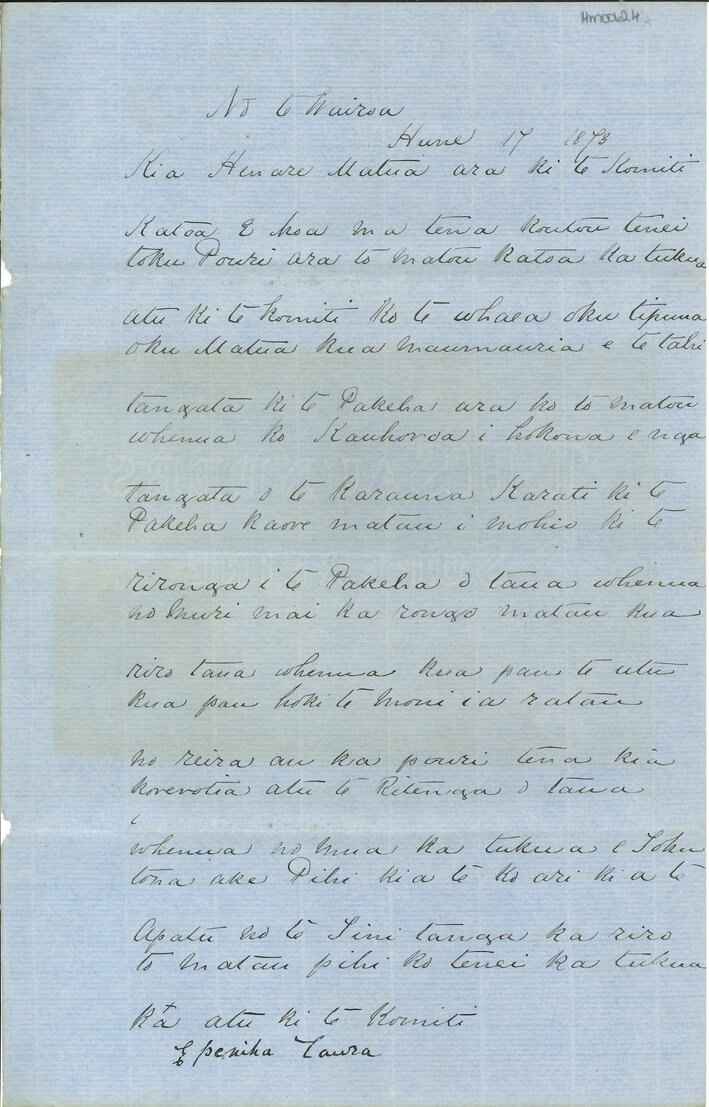 HM00624
No te Wairoa
Hune 17 1873
Kia Henare Matua ara ki te Komiti
Katoa E hoa ma tena koutou tenei
toku Pouri ara to matou katoa ka tukua
atu ki te komiti ko te whaea oku tipuna
oku Matua kua maumauria e te tahi
tangata ki te Pakeha ara ko to matou
whenua ko Kauhoroa i hokona e nga
tangata o te Karauna Karati ki te
Pakeha kaore matau i mohio ki te
rironga i te Pakeha o taua whenua
no muri mai ka rongo matau kua
riro taua whenua kua pau te utu
kua pau hoki te moni i a ratau
no reira au ka pouri tena kia
korerotia atu te Ritenga o taua
i
whenua no mua ka tukua e
tona ake Pihi kia te ko ari ki a te
Apatu no te tanga ka riro
to matau pihi ko tenei ka tukua
Ka atu ki te Komiti
Epeniha Taura